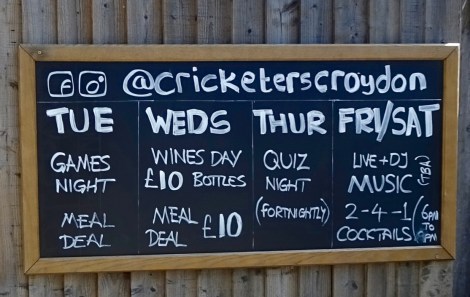 @cricketerscroydon
TUE
GAMES
NIGHT
MEAL
DEAL
WEDS
WINES DAY
£10 BOTTLES
MEAL
DEAL £10
THUR
QUIZ
NIGHT
(FORTNIGHTLY)
FRI/SAT
LIVE + DJ
MUSIC (TBA)
2-4-1
COCKTAILS
(6PM
TO
PM